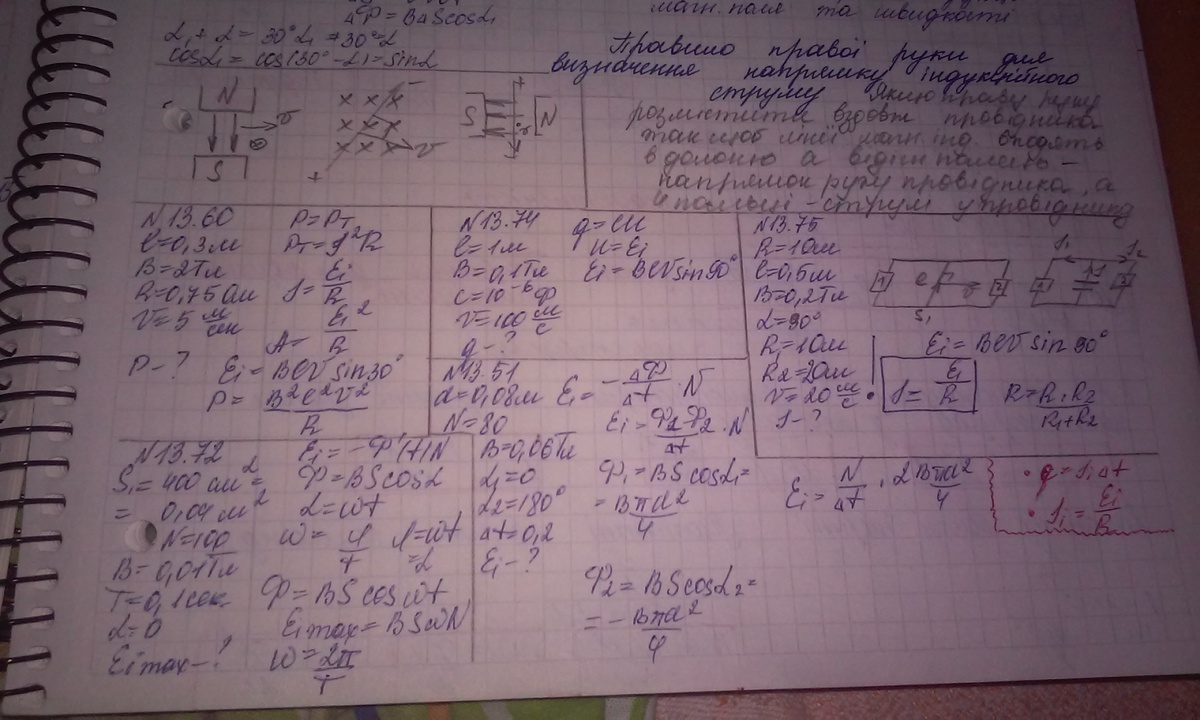 ΔФ = BΔS cosα₁
α₁ + α = 90° α₁ = 90° - α
cosα₁ = cos(90° - α) = sinα
магн. поля та швидкості
Правило правої руки для
визначення напрямку індукційного
струму Якщо праву руку
розмістити вздовж провідника
так щоб лінії магн
в долоню а відгн палець -
напрямок руху провідника, а
4 пальці - струм у провіднику
N
S
v
x x x
x x x
x x x
v
+
S
N
+
N 13.60
l = 0,3 м
B = 2 Тл
R = 0,75 Ом
v = 5 м/сек
P - ?
P = Pт
Pт = J²R
J = Ei/R
A = Ei²/R
Ei = BlV sin 30°
P = B²l²v²/R
N 13.74
l = 1 м
B = 0,1 Тл
c = 10⁻⁶ Ф
v = 100 м/с
q - ?
q = cU
U = Ei
Ei = BlV sin 90°
N 13.75
R = 1 Ом
l = 0,5 м
B = 0,2 Тл
α = 90°
R₁ = 1 Ом
R₂ = 2 Ом
v = 20 м/с
J - ?
Ei = BlV sin 90°
J = Ei/R
R = R₁R₂/(R₁+R₂)
N 13.51
d = 0,08 м
N = 80
B = 0,06 Тл
α₁ = 0
α₂ = 180°
Δt = 0,2
Ei - ?
Ei = - ΔФ/Δt · N
Ei = Ф₁-Ф₂/Δt · N
Ф₁ = BS cosα₁ =
= Bπd²/4
Ф₂ = BS cosα₂ =
= - Bπd²/4
Ei = N/Δt · 2Bπd²/4
• q = J₁Δt
• Ji = Ei/R
N 13.72
S₁ = 400 см² =
= 0,04 м²
N = 100
B = 0,01 Тл
T = 0,1 сек
α = 0
Ei max - ?
Ei = -Ф'(t)N
Ф = BS cosα
α = ωt
ω = φ/t φ = ωt
= α
Ф = BS cosωt
Ei max = BSωN
ω = 2π/T